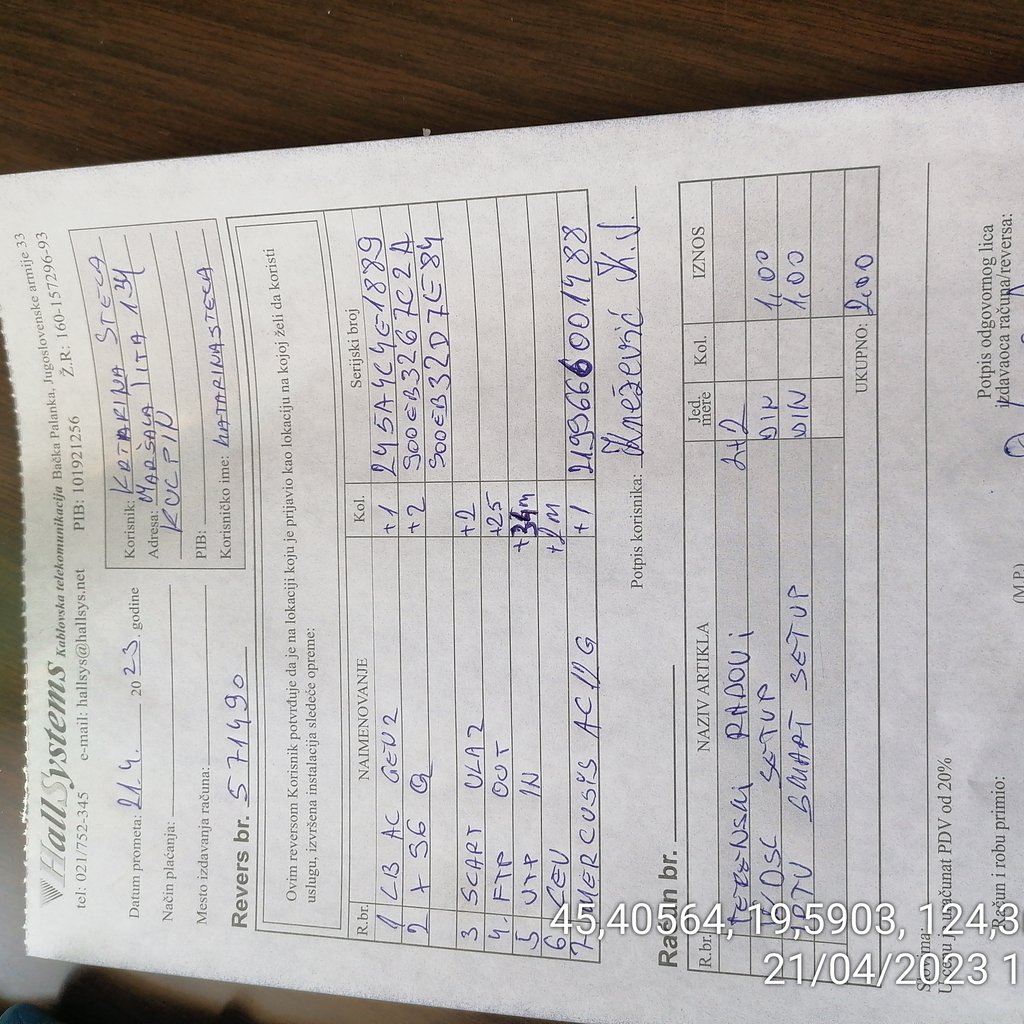 HallSystems Kablovska telekomunikacija Bačka Palanka, Jugoslovenske armije 33
tel: 021/752-345 e-mail: hallsys@hallsys.net PIB: 101921256 Ž.R: 160-157296-93
Datum prometa: 21.4. 2023. godine
Način plaćanja:
Mesto izdavanja računa:
Revers br. 571490
Korisnik: KATARINA STECA
Adresa: MARŠALA TITA 134
KUCPIN
PIB:
Korisničko ime: KATARINASTECA
Ovim reversom Korisnik potvrđuje da je na lokaciji koju je prijavio kao lokaciju na kojoj želi da koristi
uslugu, izvršena instalacija sledeće opreme:
R.br. NAIMENOVANJE Kol. Serijski broj
1 CB AC GEV2 +1 245A4C4E1889
2 +2 900EB3267C2A
900EB32D7E84
3 SCART ULAZ +2
4. FTP OUT +25
5 UTP IN +34m
6 CEV +2M
7 MERCUSYS AC12G +1 2193666001488
Potpis korisnika: Knežević K.V.
Račun br.
R.br. NAZIV ARTIKLA Jed. mere Kol. IZNOS
TERENSKI RADOVI 2+2
SETUP DIN 1,00
IPTV SMART SETUP DIN 1,00
UKUPNO: 2,00
Slovima:
PDV od 20%
Račun i robu primio:
(M.P.)
Potpis odgovornog lica
izdavaoca računa/reversa:
45,40564, 19,5903, 124,3
21/04/2023 1